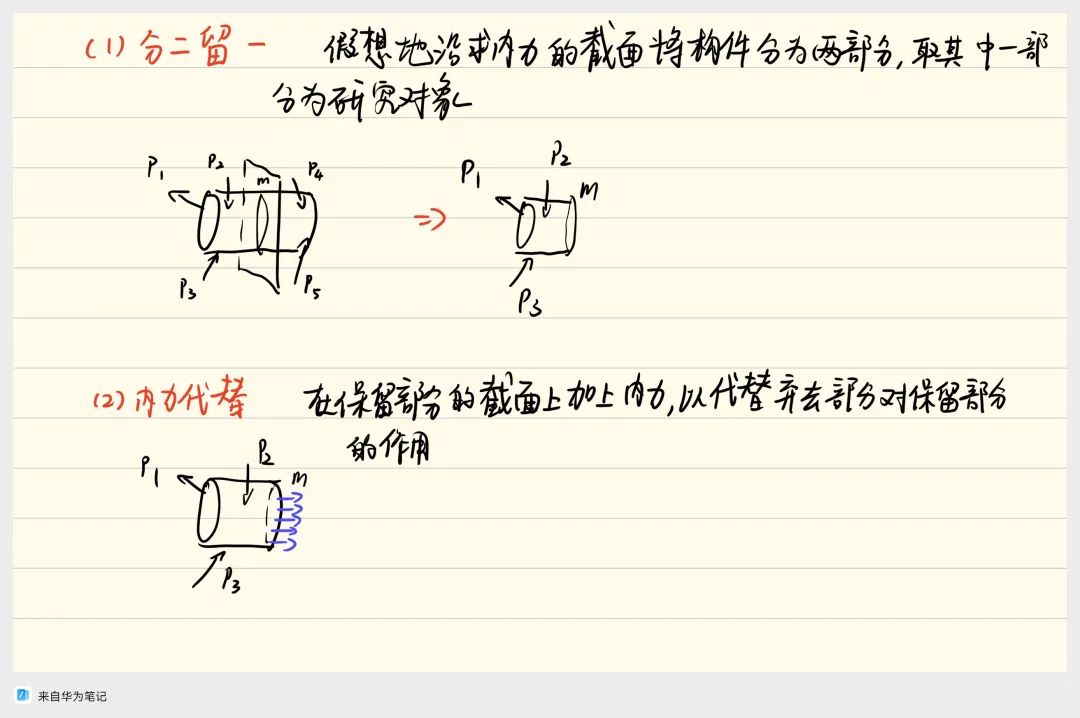 (1) 分二留一 假想地沿求内力的截面将构件分为两部分,取其中一部
分为研究对象
P1 P2 m P4 P3 P5
⇒
P1 P2 m P3
(2) 内力代替 在保留部分的截面上加上内力,以代替弃去部分对保留部分
的作用
P1 P2 m P3
来自华为笔记